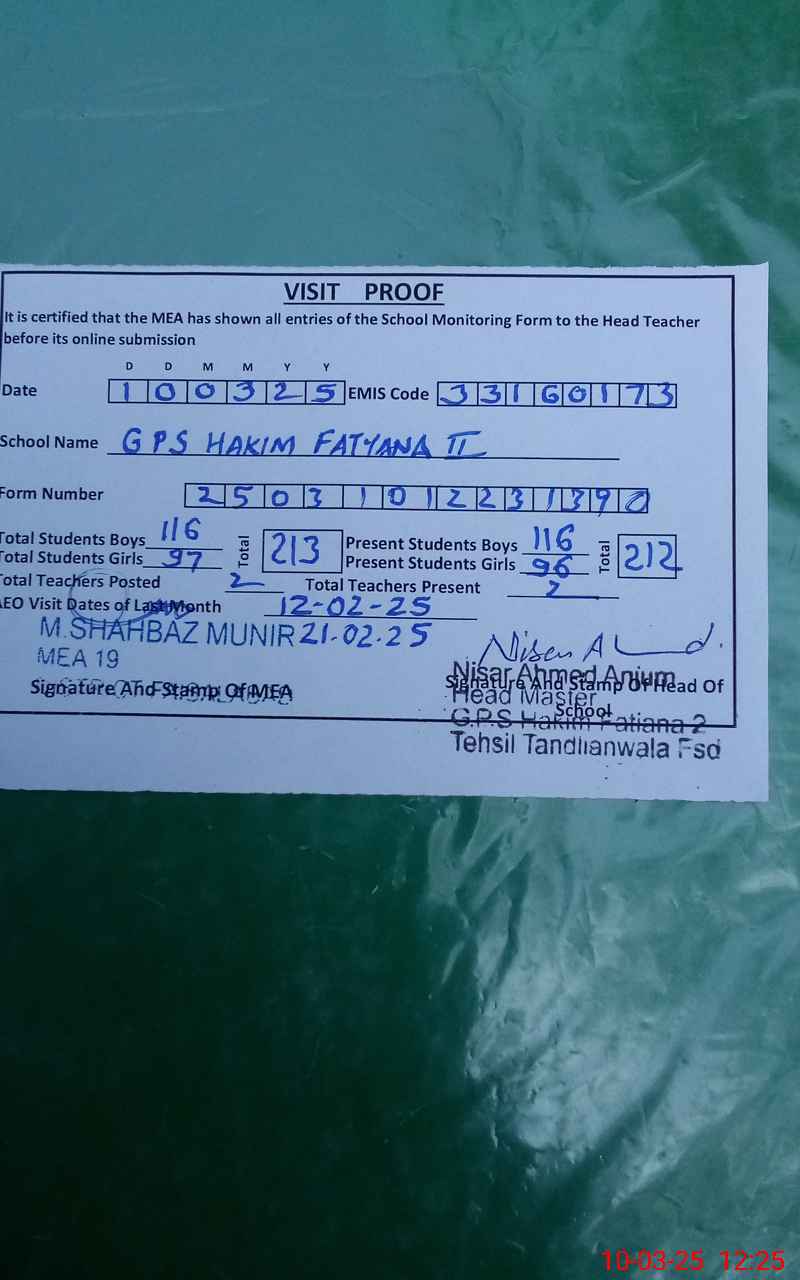 VISIT PROOF
It is certified that the MEA has shown all entries of the School Monitoring Form to the Head Teacher
before its online submission
D D M M Y Y
Date 1 0 0 3 2 5 EMIS Code 3 3 1 6 0 1 7 3
School Name GPS HAKIM FATYANA II
Form Number 2 5 0 3 1 0 1 2 2 3 1 3 9 0
Total Students Boys 116 Total 213 Present Students Boys 116 Total 212
Total Students Girls 97 Present Students Girls 96
Total Teachers Posted 2 Total Teachers Present 2
AEO Visit Dates of Last Month 12-02-25
M.SHAHBAZ MUNIR 21.02.25
MEA 19
Signature And Stamp Of MEA
Nisar Ahmed Anjum
Signature And Stamp Of Head Of
Head Master
School
G.P.S Hakim Fatiana 2
Tehsil Tandlianwala Fsd
10-03-25 12:25